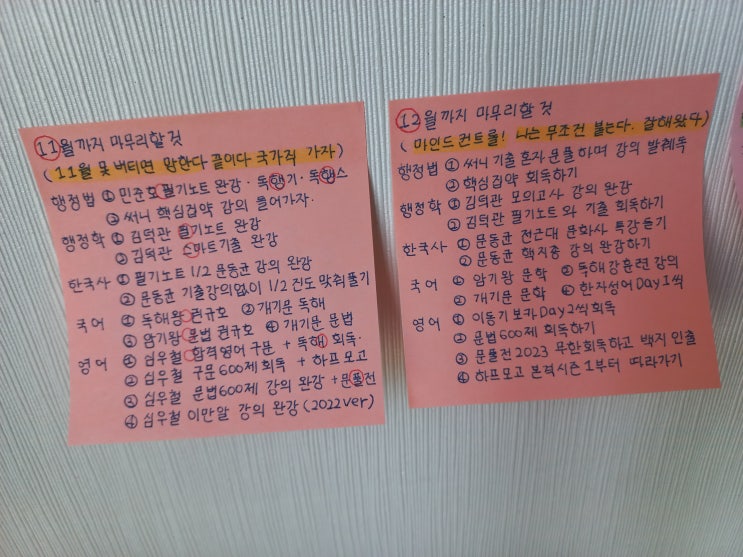 11월까지 마무리할 것
(11월 못 버티면 망한다 끝이다 국가직 가자)
행정법 ① 민준호 필기노트 완강 · 독행기 · 독행스
② 써니 핵심집약 강의 들어가자.
행정학 ① 김덕관 필기노트 완강
② 김덕관 스마트기출 완강
한국사 ① 필기노트 1/2 문동균 강의 완강
② 문동균 기출강의없이 1/2 진도 맞춰풀기
국어 ① 독해왕 권규호 ② 개기문 독해
③ 암기왕 문법 권규호 ④ 개기문 문법
영어 ① 심우철 합격영어 구문 + 독해 회독.
② 심우철 구문600제 회독 + 하프모고
③ 심우철 문법600제 강의 완강 + 문풀전
④ 심우철 이만알 강의 완강 (2022ver)
12월까지 마무리할 것
(마인드 컨트롤! 나는 무조건 붙는다. 잘해왔다)
행정법 ① 써니 기출 혼자 문풀하며 강의 발췌독
② 핵심집약 회독하기
행정학 ① 김덕관 모의고사 강의 완강
② 김덕관 필기노트와 기출 회독하기
한국사 ① 문동균 전근대 문화사 특강듣기
② 문동균 핵지총 강의 완강하기
국어 ① 암기왕 문학 ③ 독해강훈련 강의
② 개기문 문학 ④ 한자성어 Day1씩
영어 ① 이동기 보카 Day2씩 회독
② 문법600제 회독하기
③ 문풀전 2023 무한회독하고 백지 인출
④ 하프모고 본격시즌1부터 따라가기